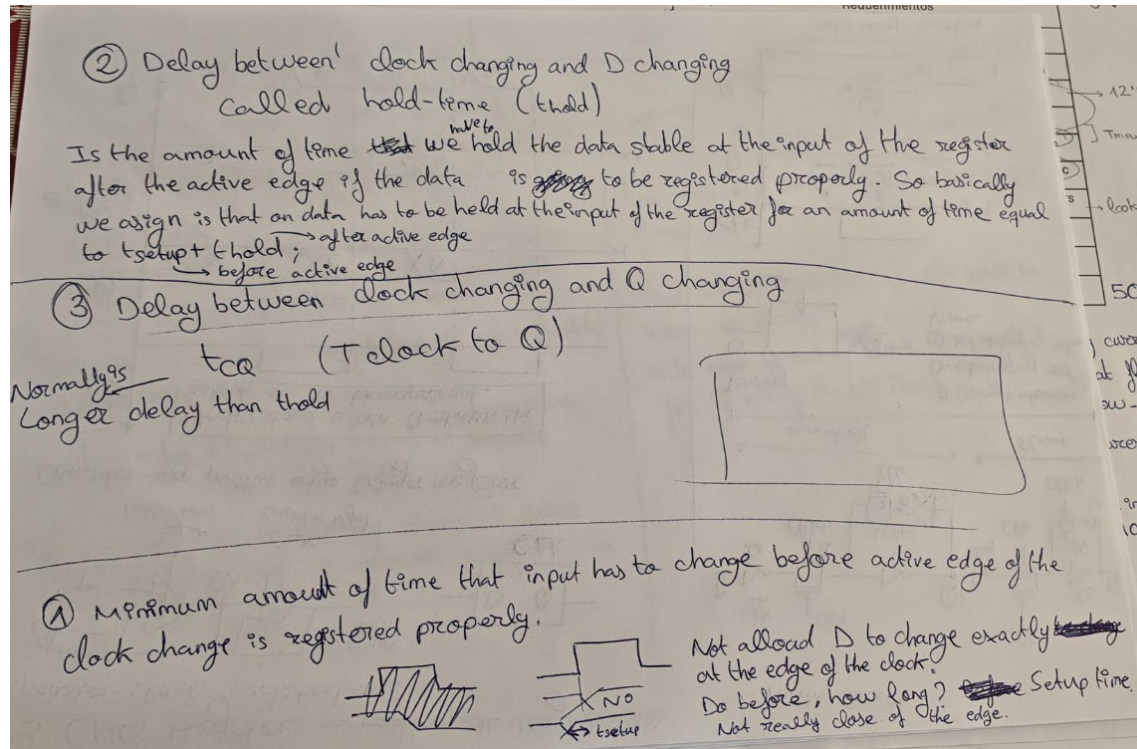 Requerimientos
② Delay between clock changing and D changing
called hold-time (thold)
have to
Is the amount of time we hold the data stable at the input of the register
after the active edge if the data is to be registered properly. So basically
we asign is that on data has to be held at the input of the register for an amount of time equal
to tsetup + thold;
after active edge
before active edge
③ Delay between clock changing and Q changing
tCQ (T clock to Q)
Normally is
Longer delay than thold
① Minimum amoudt of time that input has to change before active edge of the
clock change is registered properly.
Not alload D to change exactly
at the edge of the clock.
Do before, how long? Setup time.
Not really close of the edge.
NO
tsetup
12'
Tma
look
50
at